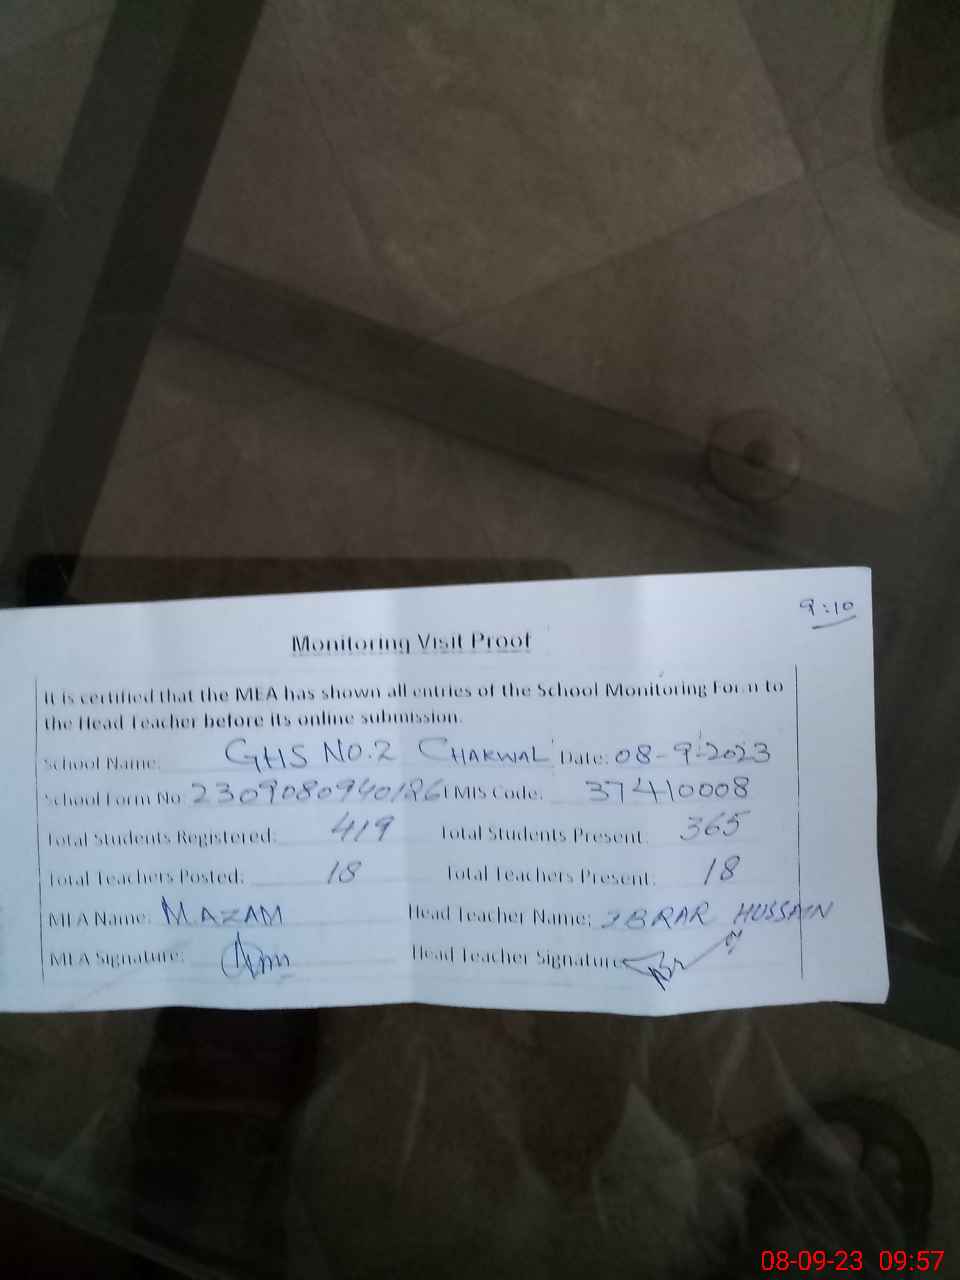 9:10
Monitoring Visit Proof
It is certified that the MEA has shown all entries of the School Monitoring Form to
the Head Teacher before its online submission.
School Name: GHS NO.2 CHAKWAL Date: 08-9-2023
School Form No: 2309080940126 EMIS Code: 37410008
Total Students Registered: 419 Total Students Present: 365
Total Teachers Posted: 18 Total Teachers Present: 18
MEA Name: M.AZAM Head Teacher Name: IBRAR HUSSAIN
MEA Signature: Head Teacher Signature
08-09-23 09:57